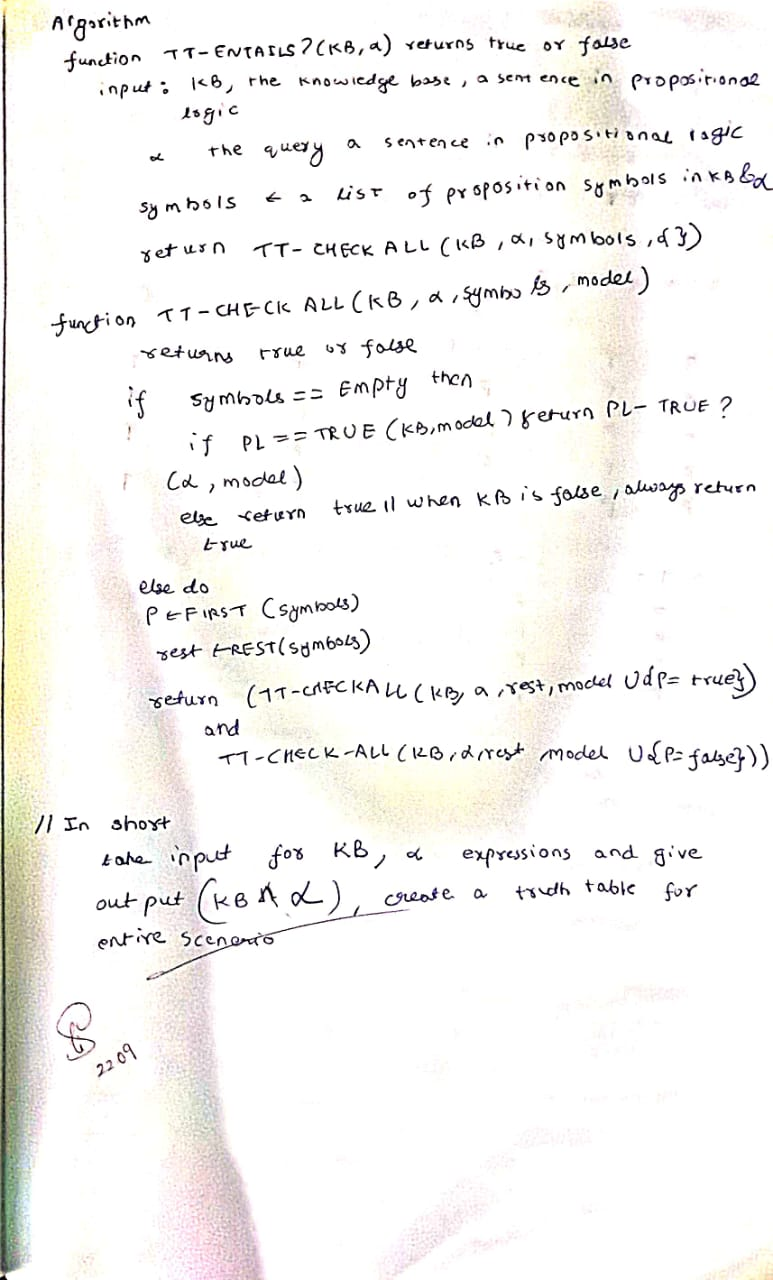 Algorithm
function TT-ENTAILS?(KB, α) returns true or false
input: KB, the knowledge base, a sentence in propositional
logic
α the query a sentence in propositional logic
symbols ← a list of proposition symbols in KB & α
return TT-CHECK ALL (KB, α, symbols, { })
function TT-CHECK ALL (KB, α, symbols, model)
returns true or false
if symbols == Empty then
if PL == TRUE (KB, model) return PL-TRUE?
(α, model)
else return true // when KB is false, always return
true
else do
P ← FIRST (symbols)
rest ← REST(symbols)
return (TT-CHECKALL (KB, α, rest, model U {P= true})
and
TT-CHECK-ALL (KB, α, rest model U {P= false}))
// In short
take input for KB, α expressions and give
output (KB ∧ α), create a truth table for
entire scenerio
2209